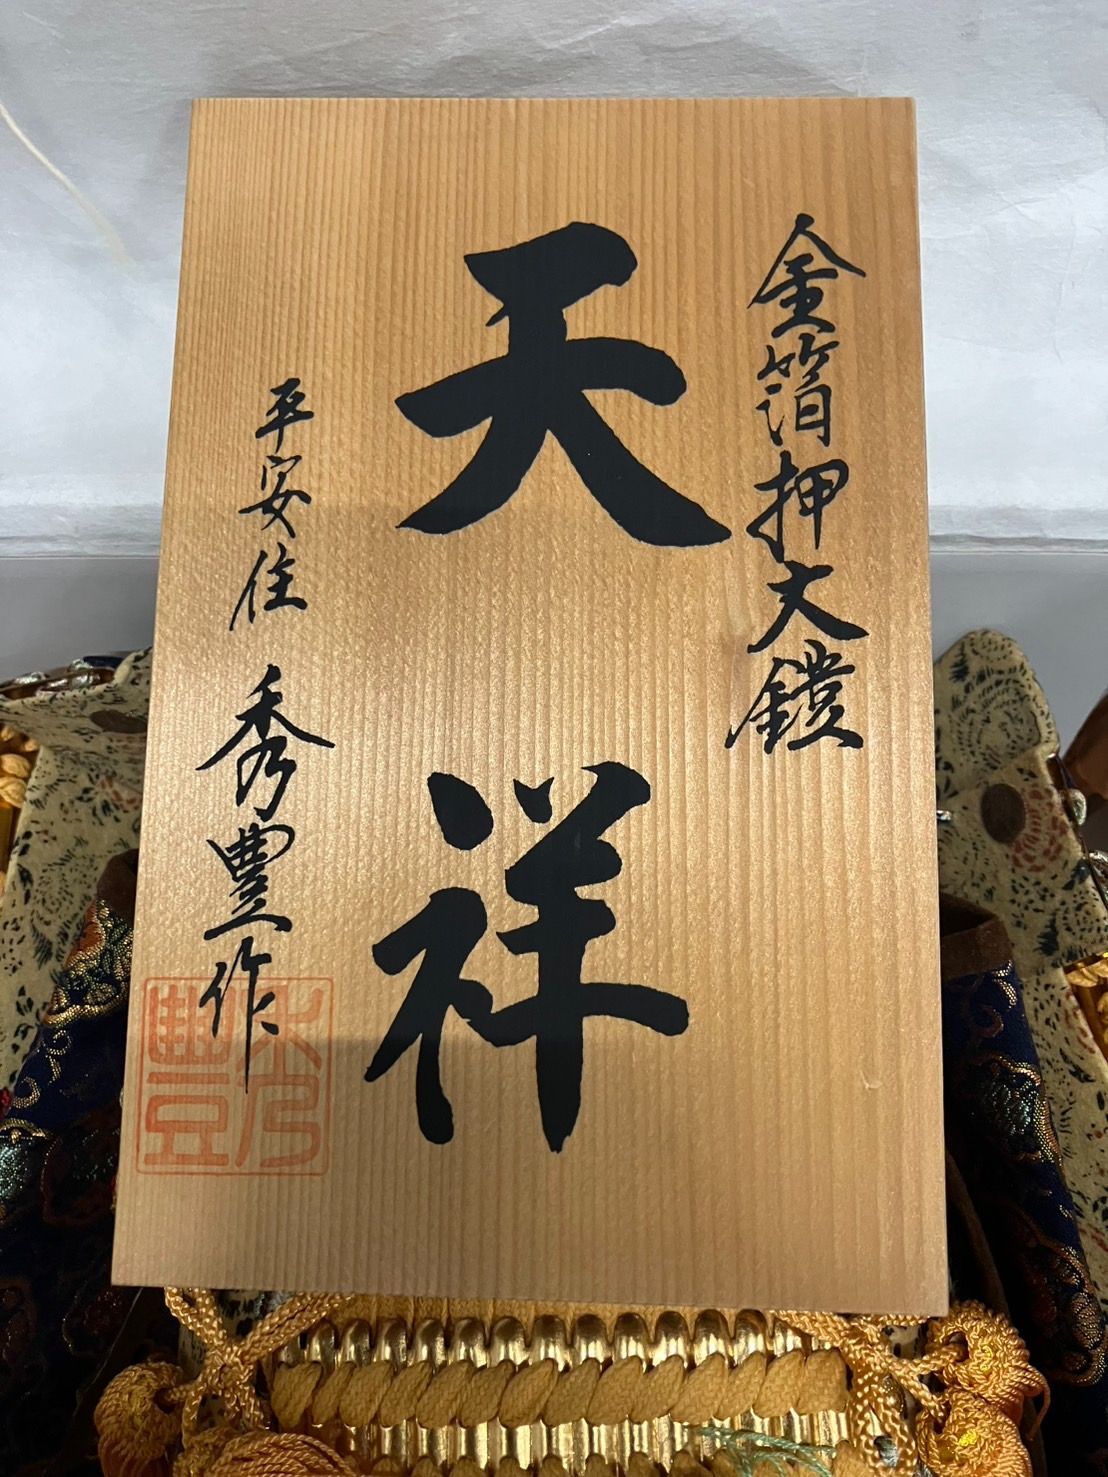 金箔押大鎧
天祥
平安住 秀豊作
秀豊